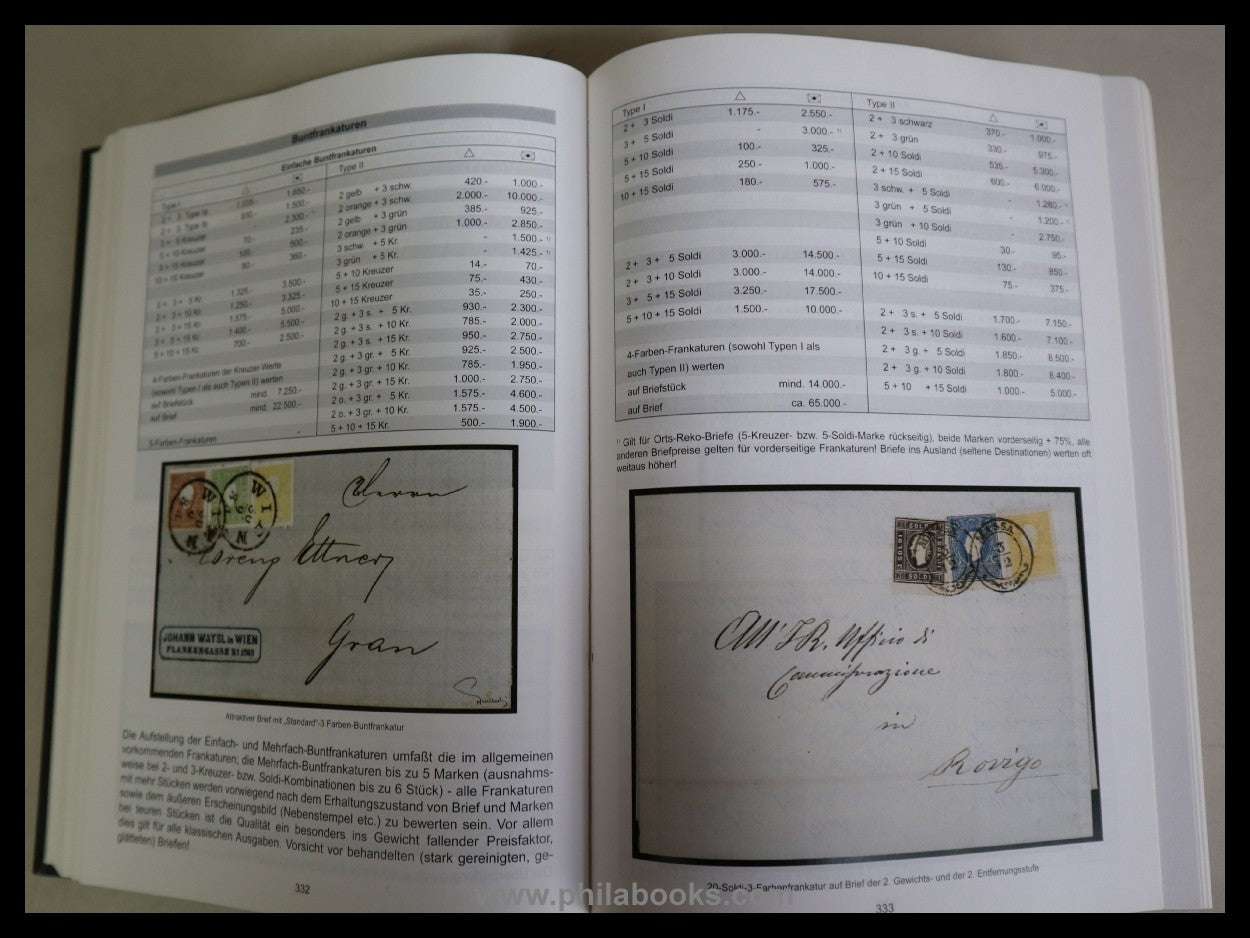 Buntfrankaturen
Einfache Buntfrankaturen
Type I
2 + 3, Type Ia 1.035.- 1.850.-
2 + 3, Type Ib 930.- 1.500.-
3 + 5 Kreuzer - 2.300.- ¹⁾
5 + 10 Kreuzer 70.- 235.-
5 + 15 Kreuzer 100.- 500.-
10 + 15 Kreuzer 80.- 360.-
2 + 3 + 5 Kr. 1.325.- 3.500.-
2 + 3 + 10 Kr. 1.250.- 3.325.-
2 + 3 + 15 Kr. 1.575.- 5.000.-
3 + 5 + 15 Kr. 1.400.- 5.500.-
5 + 10 + 15 Kr. 700.- 2.500.-
4-Farben-Frankaturen der Kreuzer-Werte
(sowohl Type I als auch Typen II) werten
auf Briefstück mind. 7.250.-
auf Brief mind. 22.500.-
5-Farben-Frankaturen -
Type II
2 gelb + 3 schw. 420.- 1.000.-
2 orange + 3 schw. 2.000.- 10.000.-
2 gelb + 3 grün 385.- 925.-
2 orange + 3 grün 1.000.- 2.850.-
3 schw. + 5 Kr. - 1.500.- ¹⁾
3 grün + 5 Kr. - 1.425.- ¹⁾
5 + 10 Kreuzer 14.- 70.-
5 + 15 Kreuzer 75.- 430.-
10 + 15 Kreuzer 35.- 250.-
2 g. + 3 s. + 5 Kr. 930.- 2.300.-
2 g. + 3 s. + 10 Kr. 785.- 2.000.-
2 g. + 3 s. + 15 Kr. 950.- 2.750.-
2 g. + 3 gr. + 5 Kr. 925.- 2.500.-
2 g. + 3 gr. + 10 Kr. 785.- 1.950.-
2 g. + 3 gr. + 15 Kr. 1.000.- 2.750.-
2 o. + 3 gr. + 5 Kr. 1.575.- 4.600.-
2 o. + 3 gr. + 10 Kr. 1.575.- 4.500.-
5 + 10 + 15 Kr. 500.- 1.900.-
WIEN
WIEN
Herrn
Lorenz Ettner
Gran
JOHANN WAYSL in WIEN
PLANKENGASSE Nº 1063
Attraktiver Brief mit „Standard"-3 Farben-Buntfrankatur
Die Aufstellung der Einfach- und Mehrfach-Buntfrankaturen umfaßt die im allgemeinen
vorkommenden Frankaturen; die Mehrfach-Buntfrankaturen bis zu 5 Marken (ausnahms-
weise bei 2- und 3-Kreuzer- bzw. Soldi-Kombinationen bis zu 6 Stück) - alle Frankaturen
mit mehr Stücken werden vorwiegend nach dem Erhaltungszustand von Brief und Marken
sowie dem äußeren Erscheinungsbild (Nebenstempel etc.) zu bewerten sein. Vor allem
bei teuren Stücken ist die Qualität ein besonders ins Gewicht fallender Preisfaktor,
dies gilt für alle klassischen Ausgaben. Vorsicht vor behandelten (stark gereinigten, ge-
glätteten) Briefen!
332
Type I
2 + 3 Soldi 1.175.- 2.550.-
3 + 5 Soldi - 3.000.- ¹⁾
5 + 10 Soldi 100.- 325.-
5 + 15 Soldi 250.- 1.000.-
10 + 15 Soldi 180.- 575.-
2 + 3 + 5 Soldi 3.000.- 14.500.-
2 + 3 + 10 Soldi 3.000.- 14.000.-
3 + 5 + 15 Soldi 3.250.- 17.500.-
5 + 10 + 15 Soldi 1.500.- 10.000.-
4-Farben-Frankaturen (sowohl Typen I als
auch Typen II) werten
auf Briefstück mind. 14.000.-
auf Brief ca. 65.000.-
Type II
2 + 3 schwarz 370.- 1.000.-
2 + 3 grün 330.- 975.-
2 + 10 Soldi 535.- 5.300.-
2 + 15 Soldi 600.- 6.000.-
3 schw. + 5 Soldi - 1.280.- ¹⁾
3 grün + 5 Soldi - 1.200.- ¹⁾
3 grün + 10 Soldi - 2.750.-
5 + 10 Soldi 30.- 95.-
5 + 15 Soldi 130.- 850.-
10 + 15 Soldi 75.- 375.-
2 + 3 s. + 5 Soldi 1.700.- 7.150.-
2 + 3 s. + 10 Soldi 1.600.- 7.100.-
2 + 3 g. + 5 Soldi 1.850.- 8.500.-
2 + 3 g. + 10 Soldi 1.800.- 8.400.-
5 + 10 + 15 Soldi 1.000.- 5.000.-
¹⁾ Gilt für Orts-Reko-Briefe (5-Kreuzer- bzw. 5-Soldi-Marke rückseitig), beide Marken vorderseitig + 75%, alle
anderen Briefpreise gelten für vorderseitige Frankaturen! Briefe ins Ausland (seltene Destinationen) werten oft
weitaus höher!
SOLDI
3 SOLDI
SOLDI
MASSA
3/2
All' I R. Uffico di
Commisurazione
in
Rovigo
20-Soldi-3-Farbenfrankatur auf Brief der 2. Gewichts- und der 2. Entfernungsstufe
333
www.philabooks.com